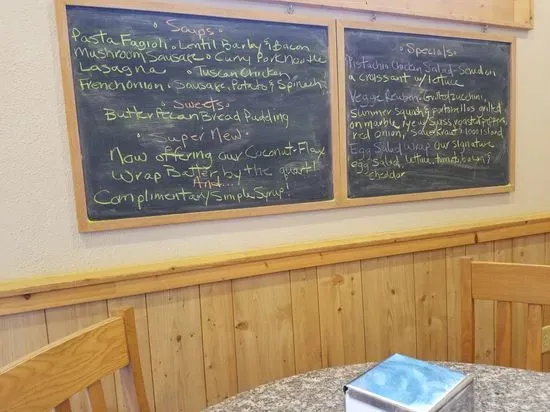 Soups
Pasta Fagioli · Lentil Barley & Bacon
Mushroom Sausage · Curry Pork Noodle
Lasagna · Tuscan Chicken
French Onion · Sausage, Potato & Spinach
Sweets
Butter Pecan Bread Pudding
Super New
Now offering our Coconut-Flax
Wrap Batter by the quart!
And...
Complimentary Simple Syrup!
Specials
Pistachio Chicken Salad - Served on
a croissant w/ lettuce
Veggie Reuben - Grilled zucchini,
Summer Squash & portobellos grilled
on marble rye w/ Swiss, roast peppers,
red onion, Sauerkraut & 1000 island
Egg Salad Wrap Our signature
egg salad, lettuce, tomato, bacon &
cheddar